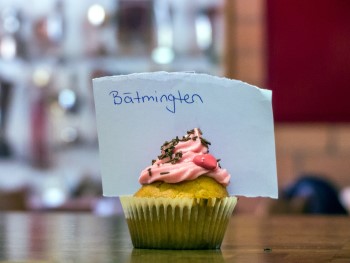 Båtmingten